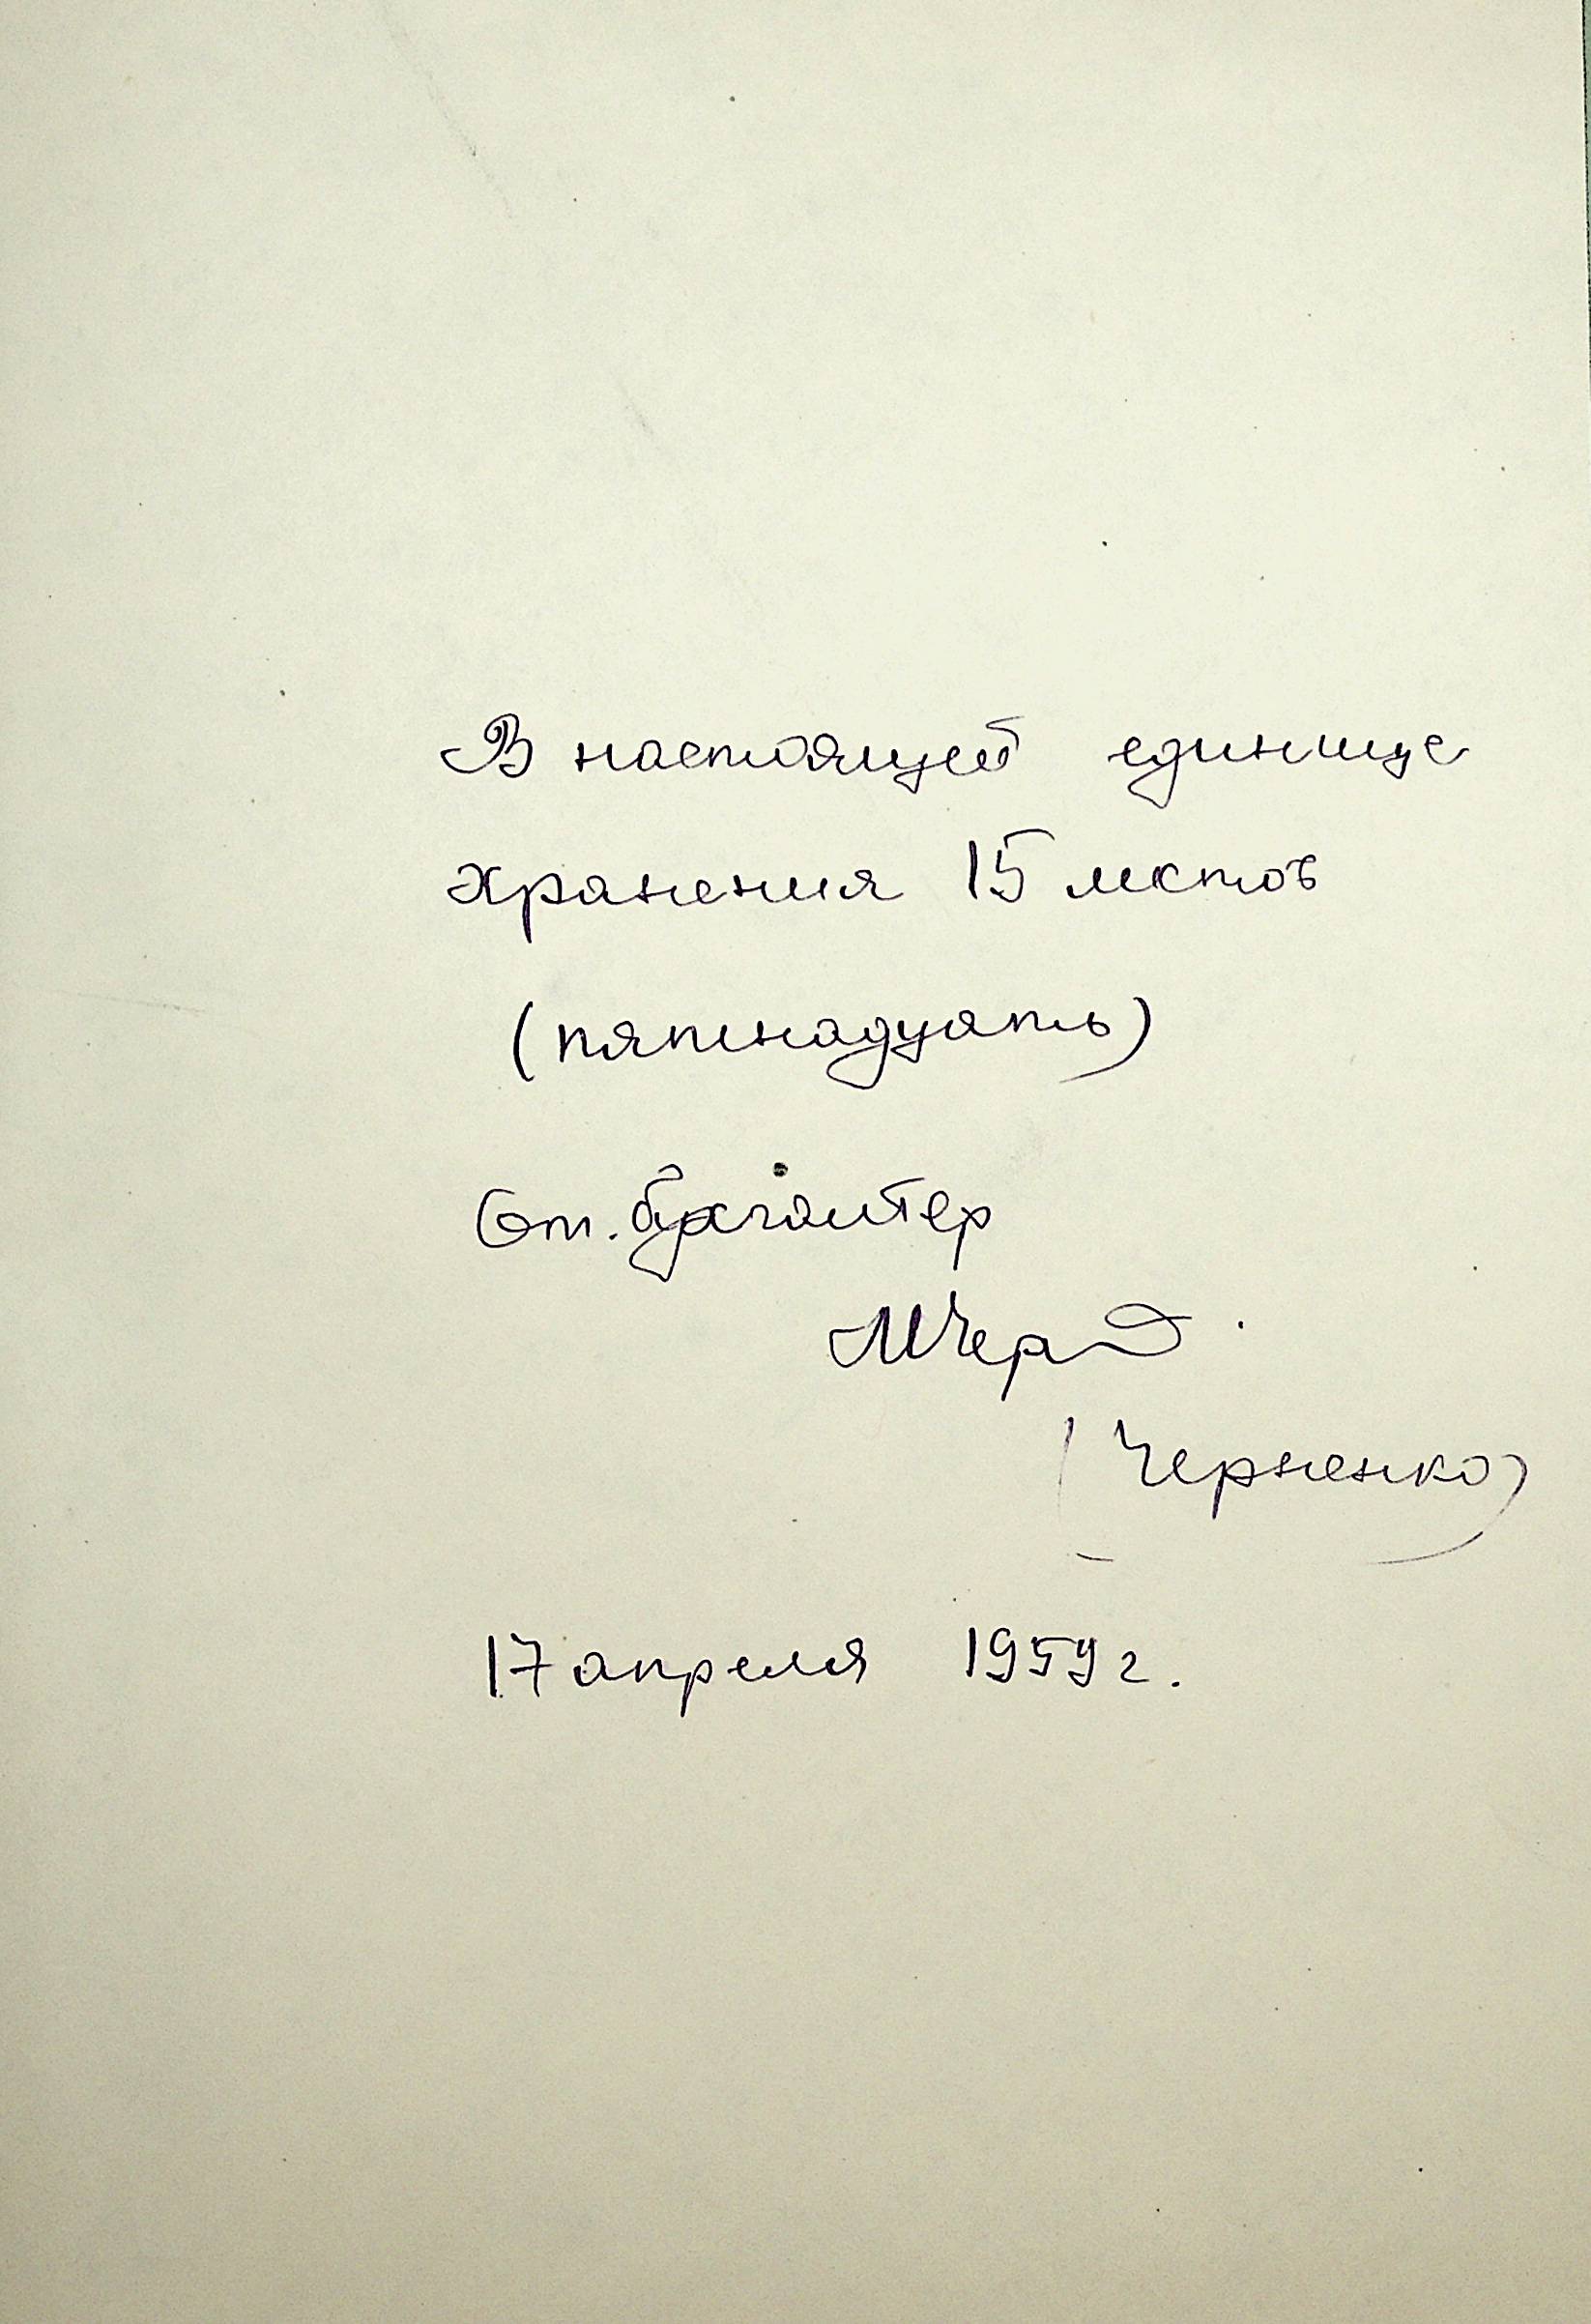 В настоящей единице
хранения 15 листов
(пятнадцать)
Ст. бухгалтер
МЧер
(Черненко)
17 апреля 1959 г.